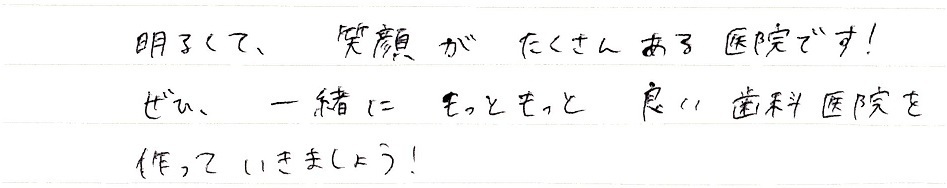 明るくて、 笑顔が たくさん ある 医院です!
ぜひ、 一緒に もっともっと 良い 歯科医院を
作って いきましょう!